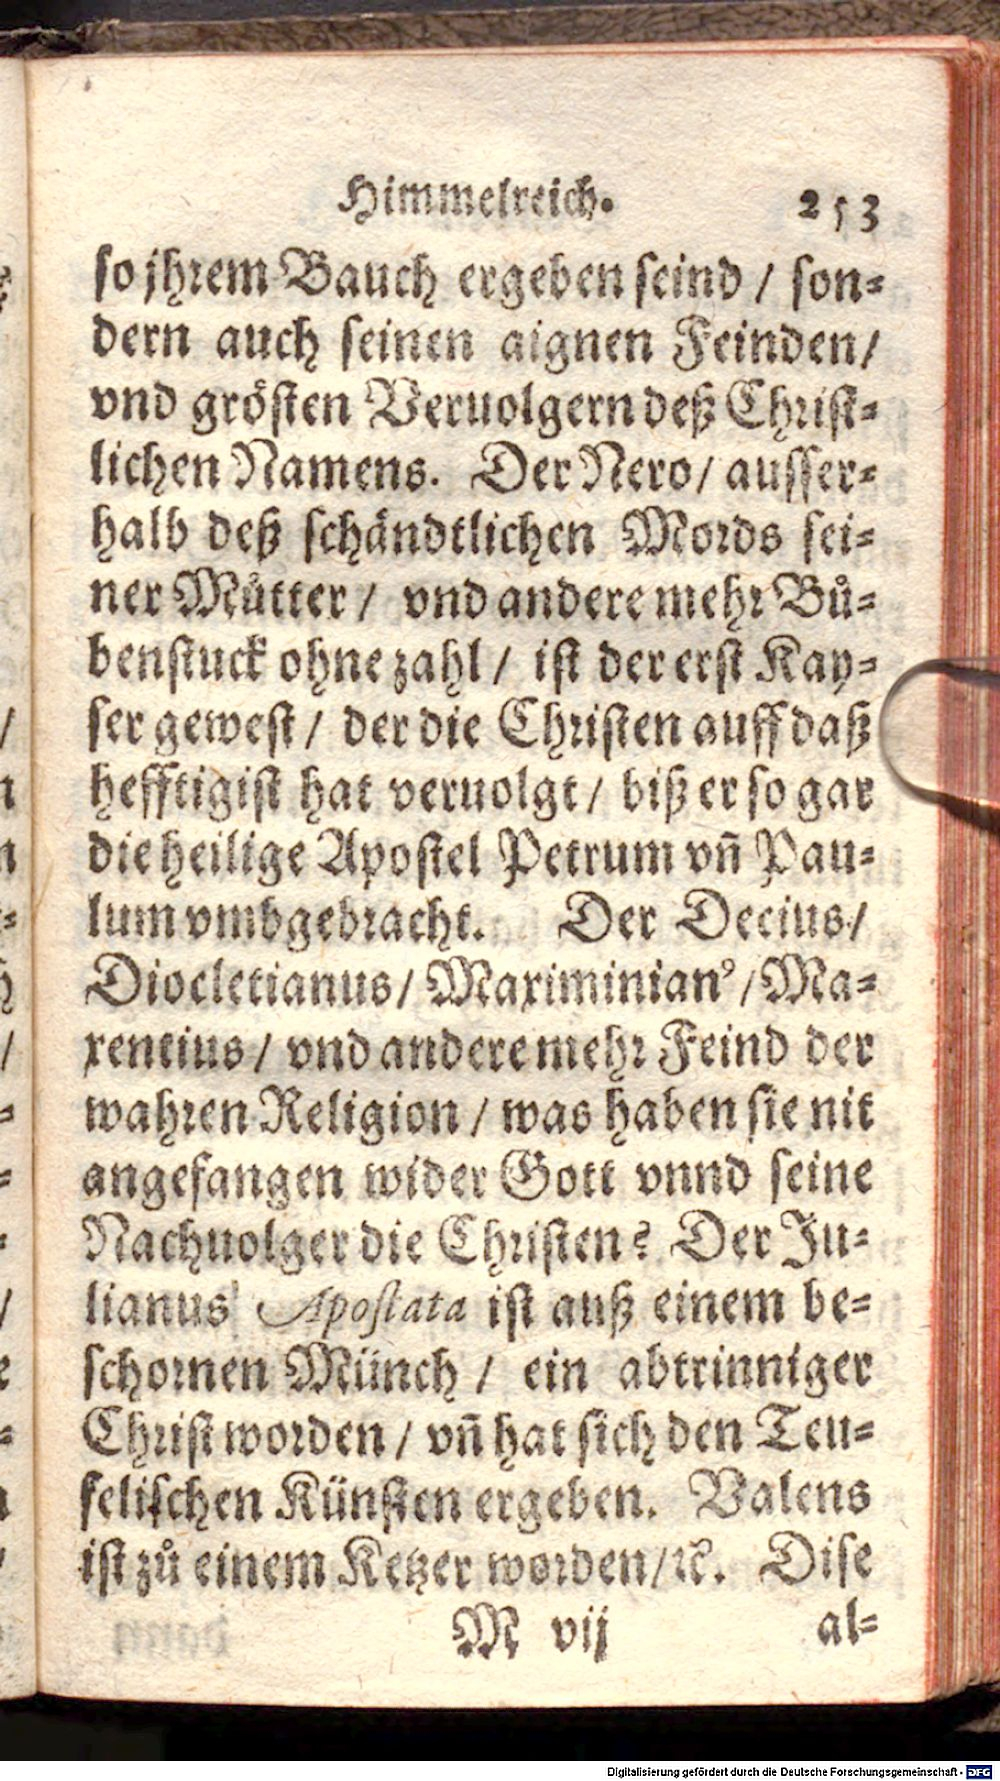 Himmelreich. 253
so jhrem Bauch ergeben seind / son=
dern auch seinen aignen Feinden/
vnd grösten Veruolgern deß Christ=
lichen Namens. Der Nero/ ausser=
halb deß schändtlichen Mords sei=
ner Můtter / vnd andere mehr Bů=
benstuck ohne zahl / ist der erst Kay=
ser gewest / der die Christen auff daß
hefftigist hat veruolgt / biß er so gar
die heilige Apostel Petrum vñ Pau=
lum vmbgebracht. Der Decius/
Diocletianus/ Maximinianꝰ/ Ma=
xentius / vnd andere mehr Feind der
wahren Religion / was haben sie nit
angefangen wider Gott vnnd seine
Nachuolger die Christen? Der Ju=
lianus Apostata ist auß einem be=
schornen Münch / ein abtrinniger
Christ worden / vñ hat sich den Teu=
felischen Künsten ergeben. Valens
ist zů einem Ketzer worden/ ꝛc. Dise
M vij al=
Digitalisierung gefördert durch die Deutsche Forschungsgemeinschaft - DFG